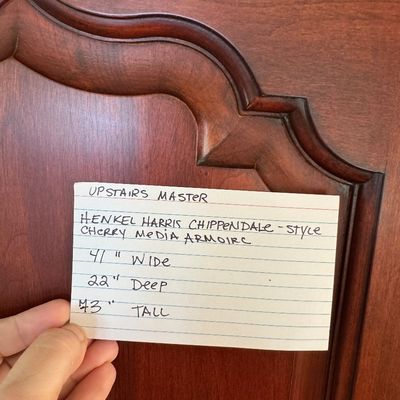 UPSTAIRS MASTER
HENKEL HARRIS CHIPPENDALE-STYLE
CHERRY MEDIA ARMOIRE
41" WIDE
22" DEEP
73" TALL